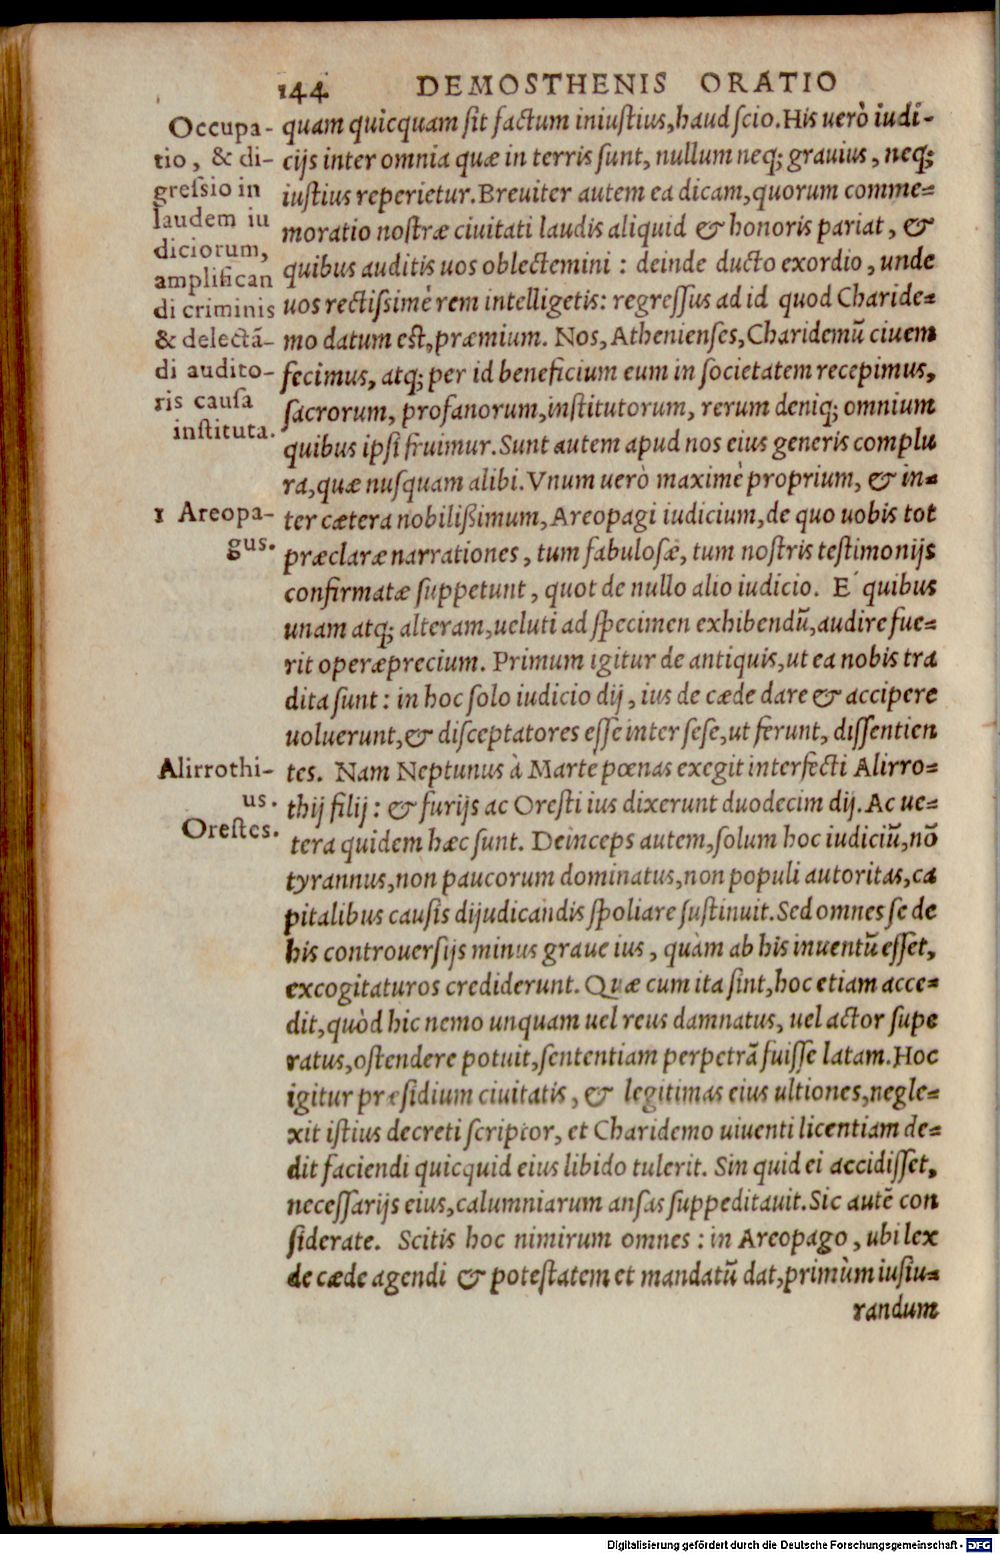 144 DEMOSTHENIS ORATIO
Occupa-
tio, & di-
gressio in
laudem iu
diciorum,
amplifican
di criminis
& delectā-
di audito-
ris causa
instituta.
quam quicquam sit factum iniustius, haud scio. His uerò iudi-
cijs inter omnia quæ in terris sunt, nullum neq; grauius, neq;
iustius reperietur. Breuiter autem ea dicam, quorum comme-
moratio nostræ ciuitati laudis aliquid & honoris pariat, &
quibus auditis uos oblectemini: deinde ducto exordio, unde
uos rectissimè rem intelligetis: regressus ad id quod Charide-
mo datum est, præmium. Nos, Athenienses, Charidemū ciuem
fecimus, atq; per id beneficium eum in societatem recepimus,
sacrorum, profanorum, institutorum, rerum deniq; omnium
quibus ipsi fruimur. Sunt autem apud nos eius generis complu
ra, quæ nusquam alibi. Vnum uerò maximè proprium, & in-
1 Areopa-
gus.
ter cætera nobilissimum, Areopagi iudicium, de quo uobis tot
præclaræ narrationes, tum fabulosæ, tum nostris testimonijs
confirmatæ suppetunt, quot de nullo alio iudicio. E quibus
unam atq; alteram, ueluti ad specimen exhibendū, audire fue-
rit operæprecium. Primum igitur de antiquis, ut ea nobis tra
dita sunt: in hoc solo iudicio dij, ius de cæde dare & accipere
uoluerunt, & disceptatores esse inter sese, ut ferunt, dissentien
Alirrothi-
us.
Orestes.
tes. Nam Neptunus à Marte pœnas exegit interfecti Alirro-
thij filij: & furijs ac Oresti ius dixerunt duodecim dij. Ac ue-
tera quidem hæc sunt. Deinceps autem, solum hoc iudiciū, nō
tyrannus, non paucorum dominatus, non populi autoritas, ca
pitalibus causis dijudicandis spoliare sustinuit. Sed omnes se de
his controuersijs minus graue ius, quàm ab his inuentū esset,
excogitaturos crediderunt. Quæ cum ita sint, hoc etiam acce-
dit, quòd hic nemo unquam uel reus damnatus, uel actor supe
ratus, ostendere potuit, sententiam perpetrā fuisse latam. Hoc
igitur præsidium ciuitatis, & legitimas eius ultiones, negle-
xit istius decreti scriptor, et Charidemo uiuenti licentiam de-
dit faciendi quicquid eius libido tulerit. Sin quid ei accidisset,
necessarijs eius, calumniarum ansas suppeditauit. Sic autē con
siderate. Scitis hoc nimirum omnes: in Areopago, ubi lex
de cæde agendi & potestatem et mandatū dat, primùm iusiu-
randum
Digitalisierung gefördert durch die Deutsche Forschungsgemeinschaft - DFG